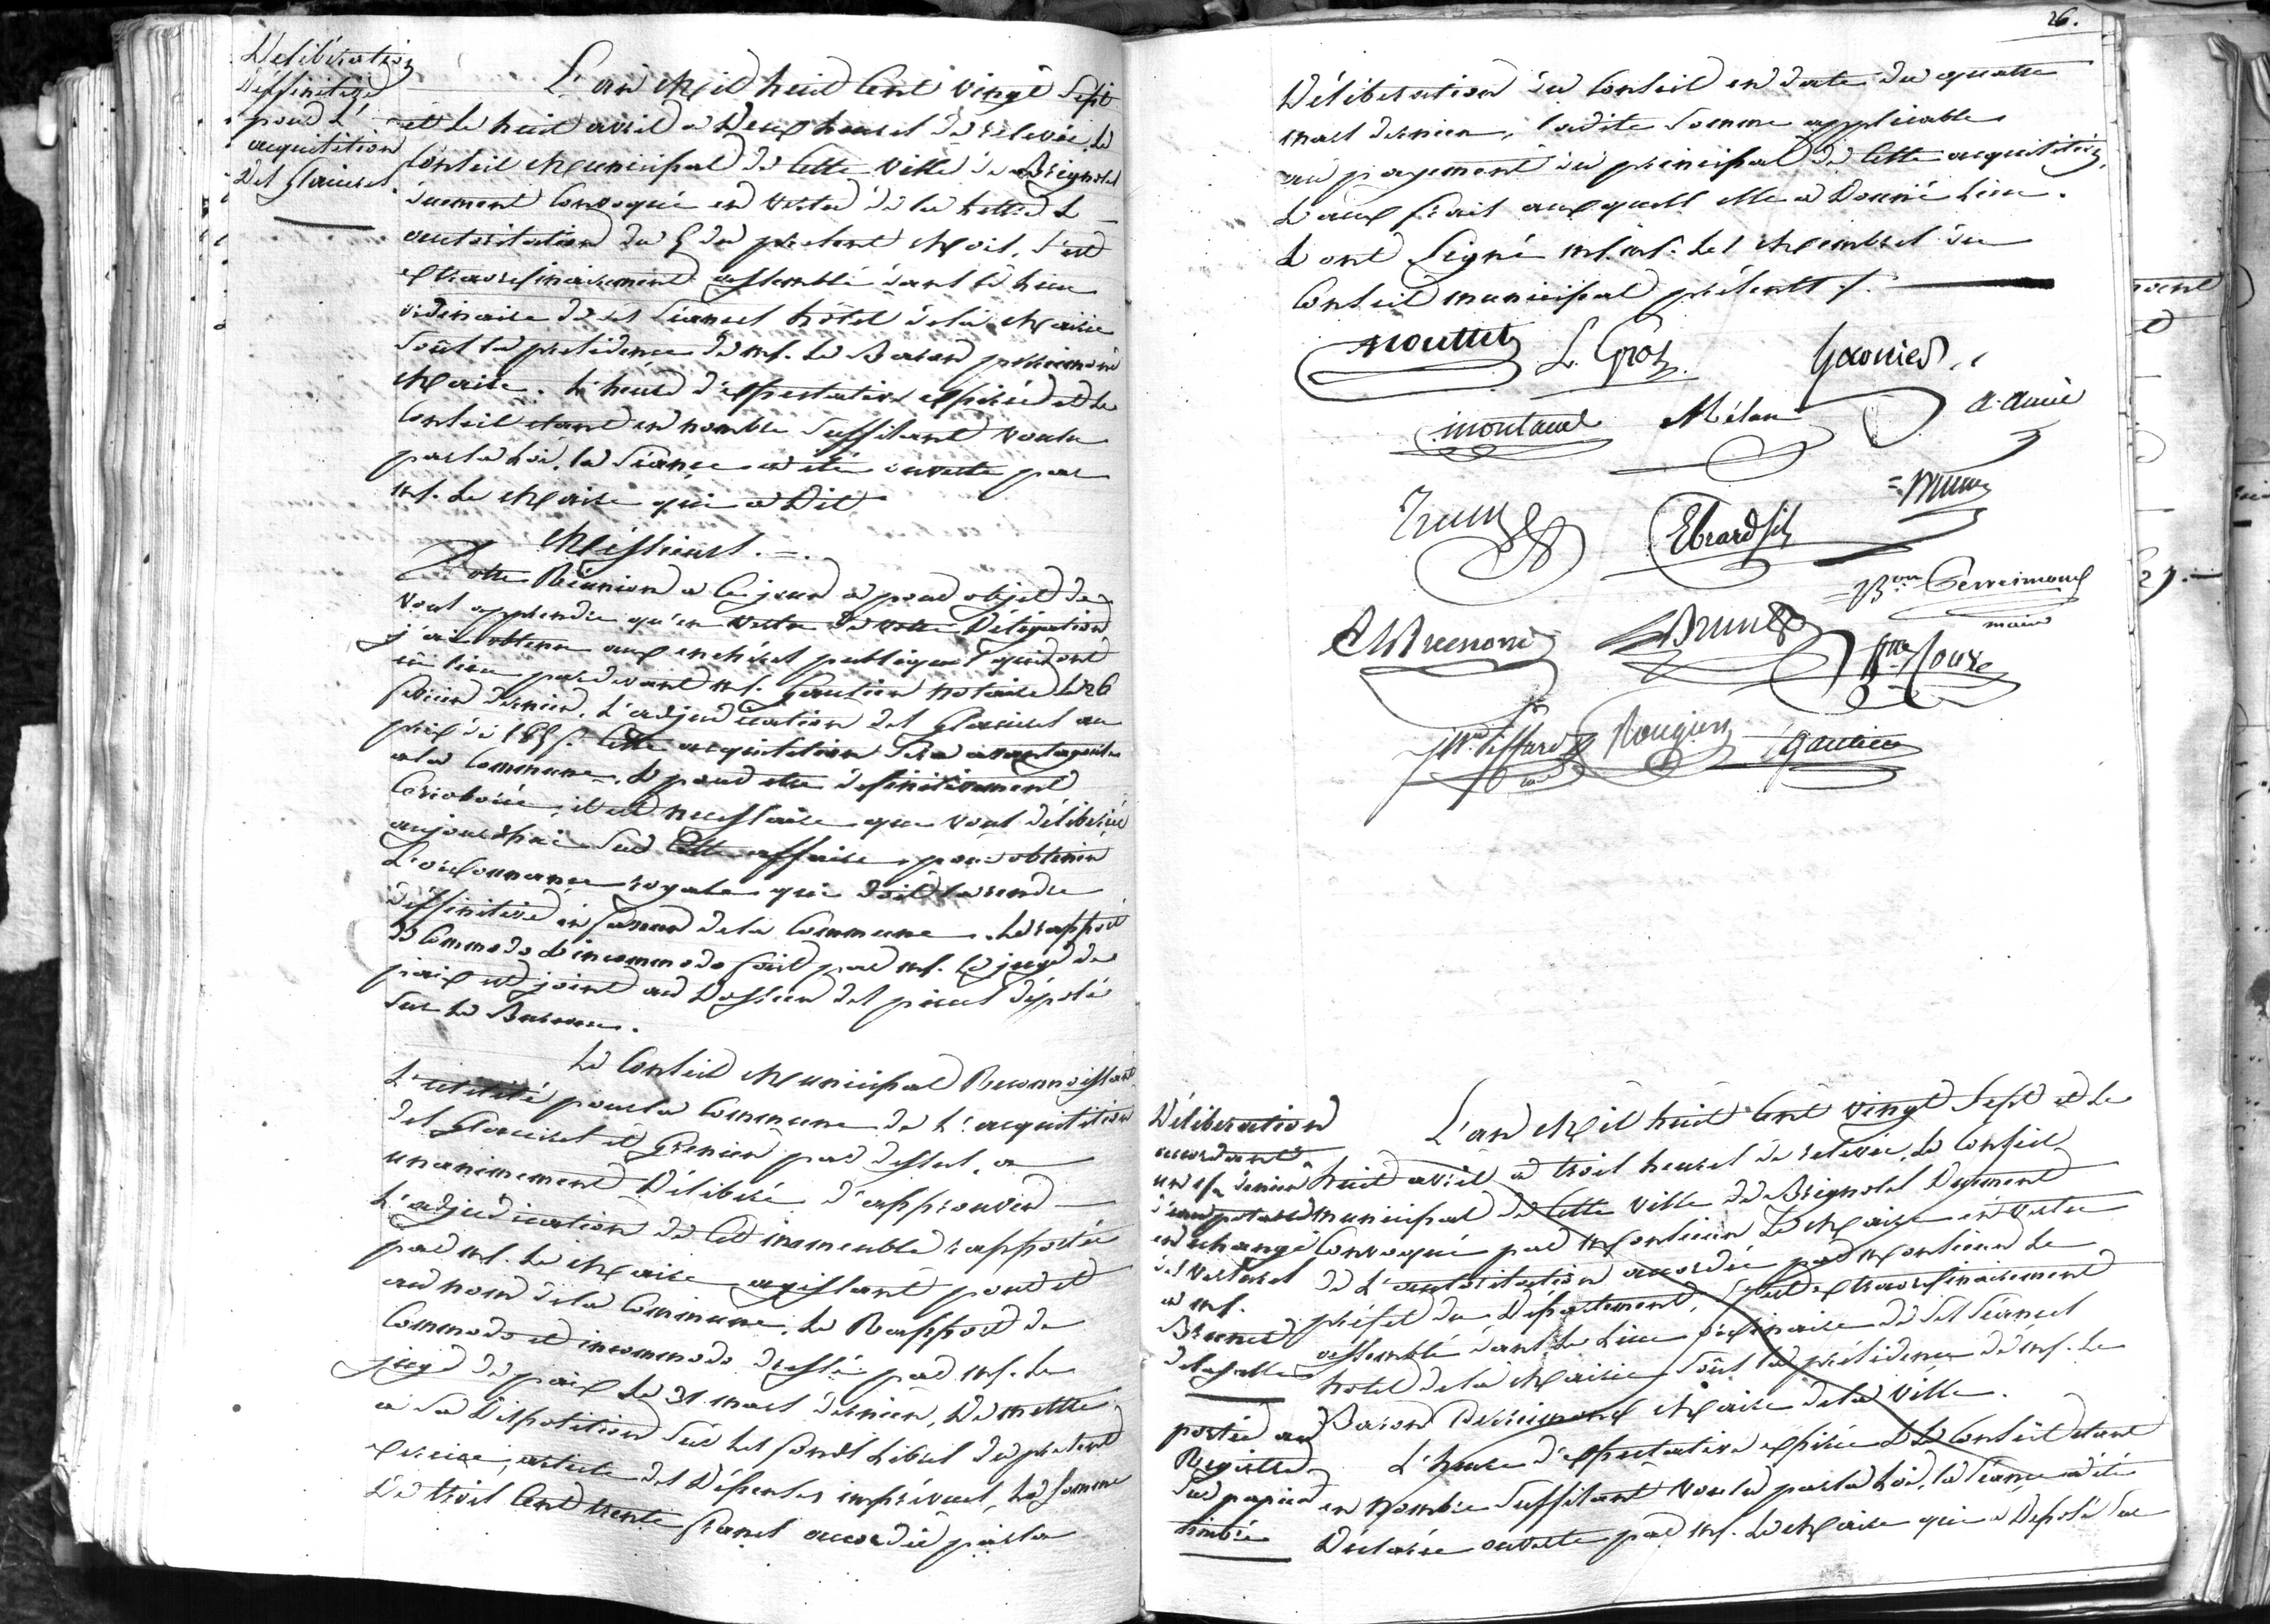 Délibération
Déffinitive
pour l'
acquisition
des Glacieres.
L'an Mil huit Cent vingt Sept
et le huit avril à Deux heures de relevée, le
Conseil Municipal de Cette Ville de Brignoles
duement Convoqué en vertu de la lettre d'
autorisation du 5 du présent Mois, s'est
extraordinairement assemblé dans le lieu
ordinaire de ses Séances hôtel de la Mairie
Sous la présidence de Mr. Le Baron perreimond
Maire. l'heure d'expectative expirée et le
Conseil étant en nombre Suffisant voulu
par la Loi, la Séance a été ouverte par
Mr. Le Maire qui a Dit
Messieurs. —.
Votre Réunion de ce jour a pour objet de
vous apprendre qu'en vertu de votre Délégation
j'ai obtenu aux enchères publiques qui ont
eu lieu pardevant Mr. Gautier notaire le 26
février dernier, l'adjudication des Glacieres au
prix de 185 f. Cette acquisition sera avantageuse
à la Commune, Et pour être définitivement
Corroborée, il est nécessaire que vous délibériez
aujourdhui Sur Cette affaire, pour obtenir
L'ordonnance royale qui doit la rendre
déffinitive en faveur de la Commune. Le rapport
de Commodo et incommodo fait par Mr. le juge de
paix est joint au Dossier des pièces déposé
Sur le Bureau.
Le Conseil Municipal Reconnoissant
L'utilité pour la Commune de l'acquisition
des Glacieres et Grenier par dessus, a
unanimement Délibéré d'approuver
L'adjudication de Cet immeuble rapportée
par Mr. Le Maire agissant pour et
au nom de la Commune, le Rapport de
Commodo et incommodo dressé par Mr. Le
juge de paix le 31 mars dernier, De mettre
à sa Disposition Sur les fonds Libres du présent
exercice, article des Dépenses imprévues, la Somme
De trois Cent trente francs accordée par la
26.
Délibération du Conseil en date du quatre
mars dernier, ladite Somme applicable
au payement du principal de Cette acquisition,
Et aux frais auxquels elle a Donné lieu.
Et ont Signé MM. Les Membres du
Conseil municipal présents ./.
Mouttet L. Gros Garnier
montaud Mélan a. amic
Ebrard fils
Bon Perreimond
maire
Brunet
Rougier Gautier
Délibération
accordant
un denier
d'eau potable
en échange
des versures
à Mr.
Brunet
delasalle
portée au
Registre
Sur papier
timbré
L'an Mil huit Cent vingt Sept et le
huit avril à trois heures de relevée, Le Conseil
municipal de Cette Ville de Brignoles Duement
Convoqué par Monsieur Le Maire en vertu
de L'autorisation accordée par Monsieur Le
préfet du Département, S'est extraordinairement
assemblé dans le Lieu ordinaire de ses Séances
hotel de la Mairie Sous la présidence de Mr. Le
Baron Perreimond Maire de la Ville.
L'heure d'expectative expirée Et le Conseil étant
en nombre Suffisant voulu par la Loi, la Séance a été
Déclarée ouverte par Mr. Le Maire qui a Déposé Sur